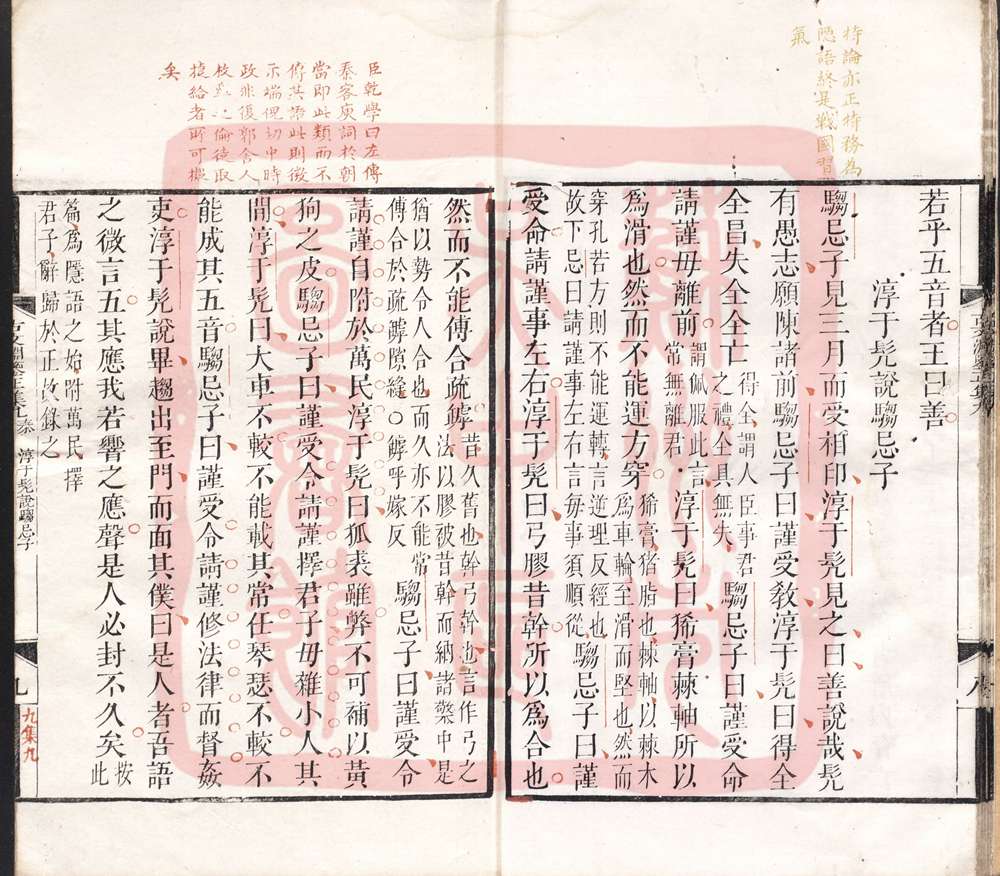 持論亦正特務為
隱語終是戰國習
氣
若乎五音者王曰善
淳于髠說騶忌子
騶忌子見三月而受相印淳于髠見之曰善說哉髠
有愚志願陳諸前騶忌子曰謹受敎淳于髠曰得全
全昌失全全亡
得全謂人臣事君
之禮全具無失
騶忌子曰謹受命
請謹毋離前
謂佩服此言
常無離君
淳于髠曰狶膏棘軸所以
爲滑也然而不能運方穿
狶膏猪脂也棘軸以棘木
為車輪至滑而堅也然而
穿孔若方則不能運轉言逆理反經也
故下忌曰請謹事左右言每事須順從
騶忌子曰謹
受命請謹事左右淳于髠曰弓膠昔幹所以爲合也
臣乾學曰左傳
秦客廋詞於朝
當即此類而不
傳其語此則微
示端倪切中時
政非復郭舍人
枚臯之倫徒取
捷給者所可擬
矣
然而不能傅合疏罅
昔久舊也幹弓幹也言作弓之
法以膠被昔幹而納諸檠中是
猶以勢令人合也而久亦不能常
傅合於疏罅隙縫○罅呼嫁反
騶忌子曰謹受令
請謹自附於萬民淳于髠曰狐裘雖弊不可補以黃
狗之皮騶忌子曰謹受令請謹擇君子毋雜小人其
閒淳于髠曰大車不較不能載其常任琴瑟不較不
能成其五音騶忌子曰謹受令請謹修法律而督姦
吏淳于髠說畢趨出至門而面其僕曰是人者吾語
之微言五其應我若響之應聲是人必封不久矣
按
此
篇爲隱語之始附萬民擇
君子辭歸於正故錄之
秦
淳于髠說騶忌子
九
九集九